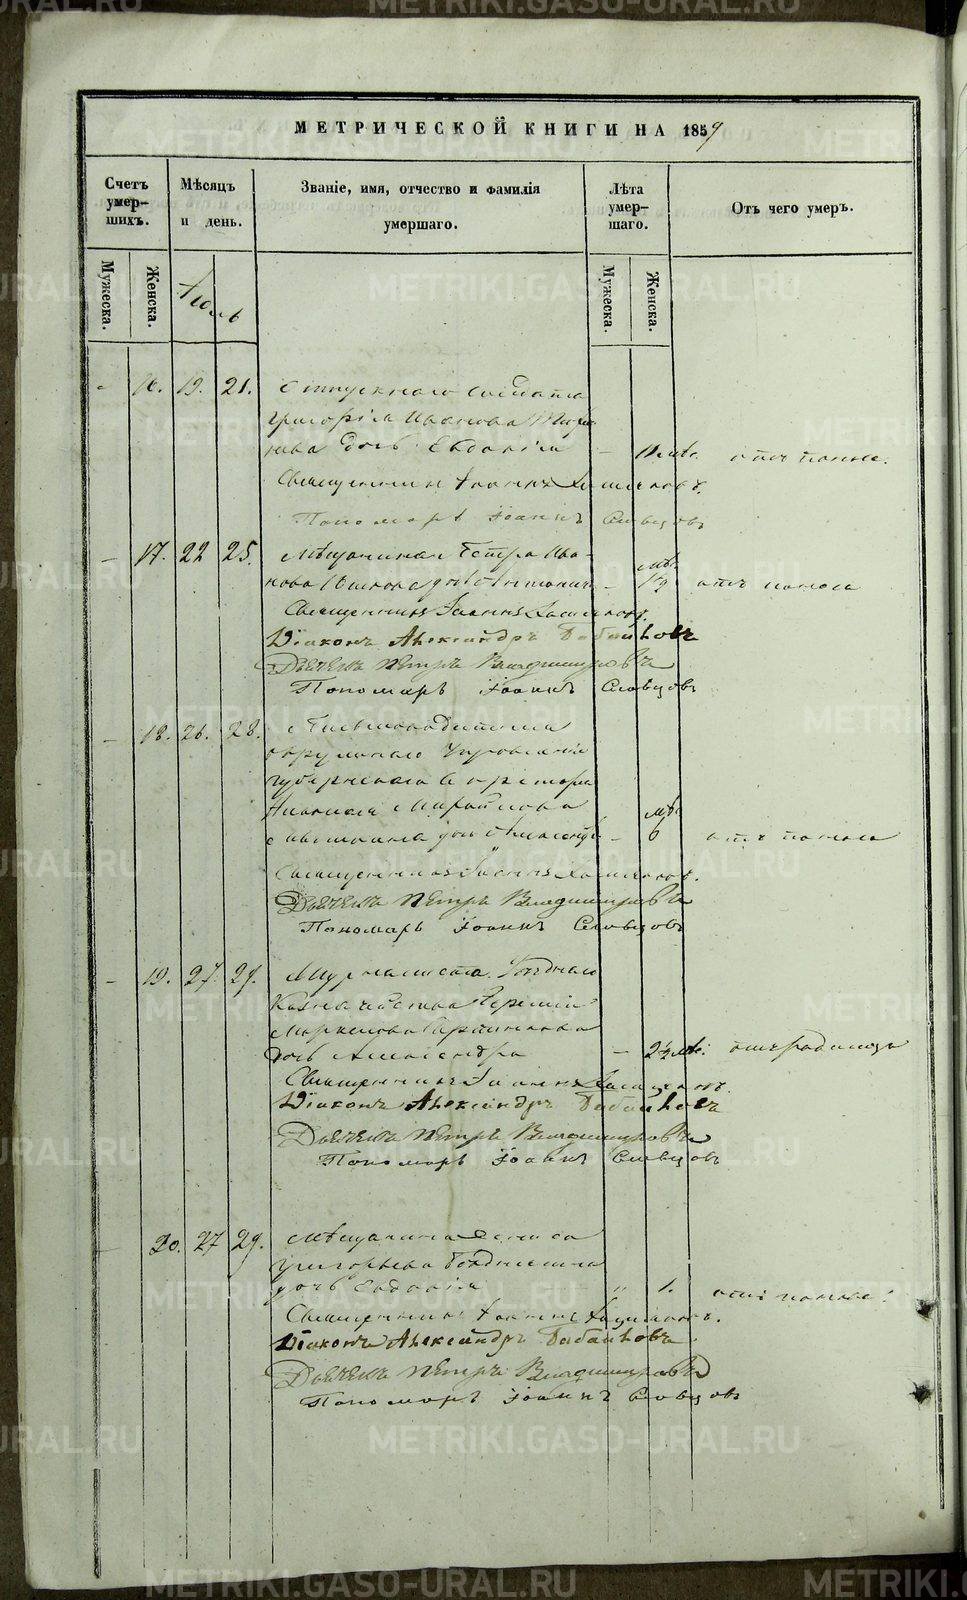 МЕТРИЧЕСКОЙ КНИГИ НА 1859
Счетъ умер-шихъ.
Мѣсяцъ и день.
Званіе, имя, отчество и фамилія умершаго.
Лѣта умер-шаго.
Отъ чего умеръ.
Мужеска.
Женска.
Іюль
Мужеска.
Женска.
16. 19. 21. Отпускнаго солдата
Григорія Иванова
дочь Евдокія — 11 мѣс. отъ поноса.
Священникъ Іоаннъ
Пономарь Іоаннъ Словцовъ
— 17. 22 25. Мѣщанина Петра Ива-
нова дочь — мѣс. 1½ отъ поноса
Священникъ Іоаннъ
Діаконъ Александръ Бабайловъ
Дьячекъ Петръ Владимировъ
Пономарь Іоаннъ Словцовъ
— 18. 26. 28. Письмоводителя
окружнаго Управленія
губернскаго Секретаря
дочь — мѣс. 6 отъ поноса
Священникъ Іоаннъ
Дьячекъ Петръ Владимировъ
Пономарь Іоаннъ Словцовъ
— 19. 27. 29. Журналиста Уѣзднаго
Казначейства
Маркелова
дочь Александра — 2½ мѣс. отъ родимца
Священникъ Іоаннъ
Діаконъ Александръ Бабайловъ
Дьячекъ Петръ Владимировъ
Пономарь Іоаннъ Словцовъ
20. 27 29. Мѣщанина Дениса
Григорьева
дочь Евдокія „ 1. отъ поноса.
Священникъ Іоаннъ
Діаконъ Александръ Бабайловъ.
Дьячекъ Петръ Владимировъ
Пономарь Іоаннъ Словцовъ
METRIKI.GASO-URAL.RU